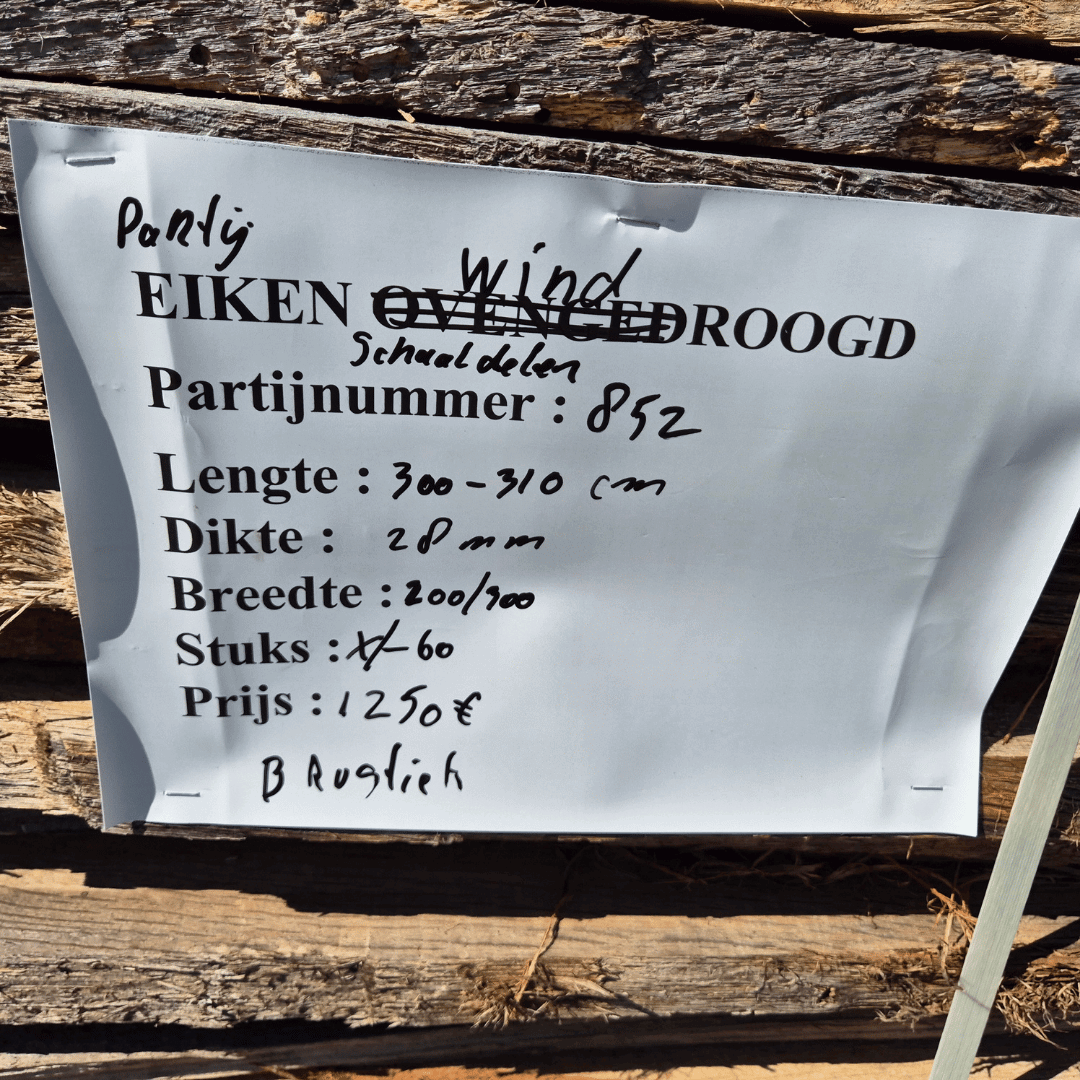 Partij
wind
EIKEN OVENGEDROOGD
Schaaldelen
Partijnummer : 852
Lengte : 300-310 cm
Dikte : 28 mm
Breedte : 200/300
Stuks : +/- 60
Prijs : 1250€
B Rustiek